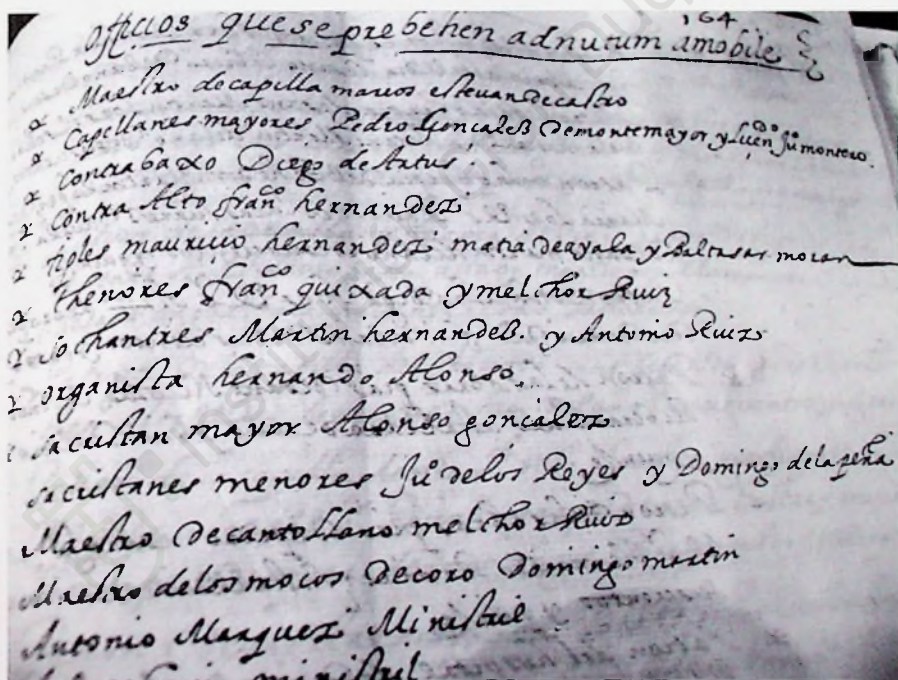 officios que se prebehen ad nutum amobile
164
Maestro de capilla marcos estevan de castro
Capellanes mayores Pedro Goncales de montemayor y Licen^do Ju^o montero.
Contrabaxo Diego de
Contra Alto fran^co hernandez
tiples mauricio hernandez matia de ayala y Baltasar moran
thenores fran^co quixada y melchor Ruiz
sochantres Martin hernandes. y Antonio Ruiz
organista hernando Alonso.
sacristan mayor Alonso goncalez
sacristanes menores Ju^o de los Reyes y Domingo de la peña
Maestro de canto llano melchor Ruiz
Maestro de los mocos de coro Domingo martin
Antonio Marquez Ministril
ministril